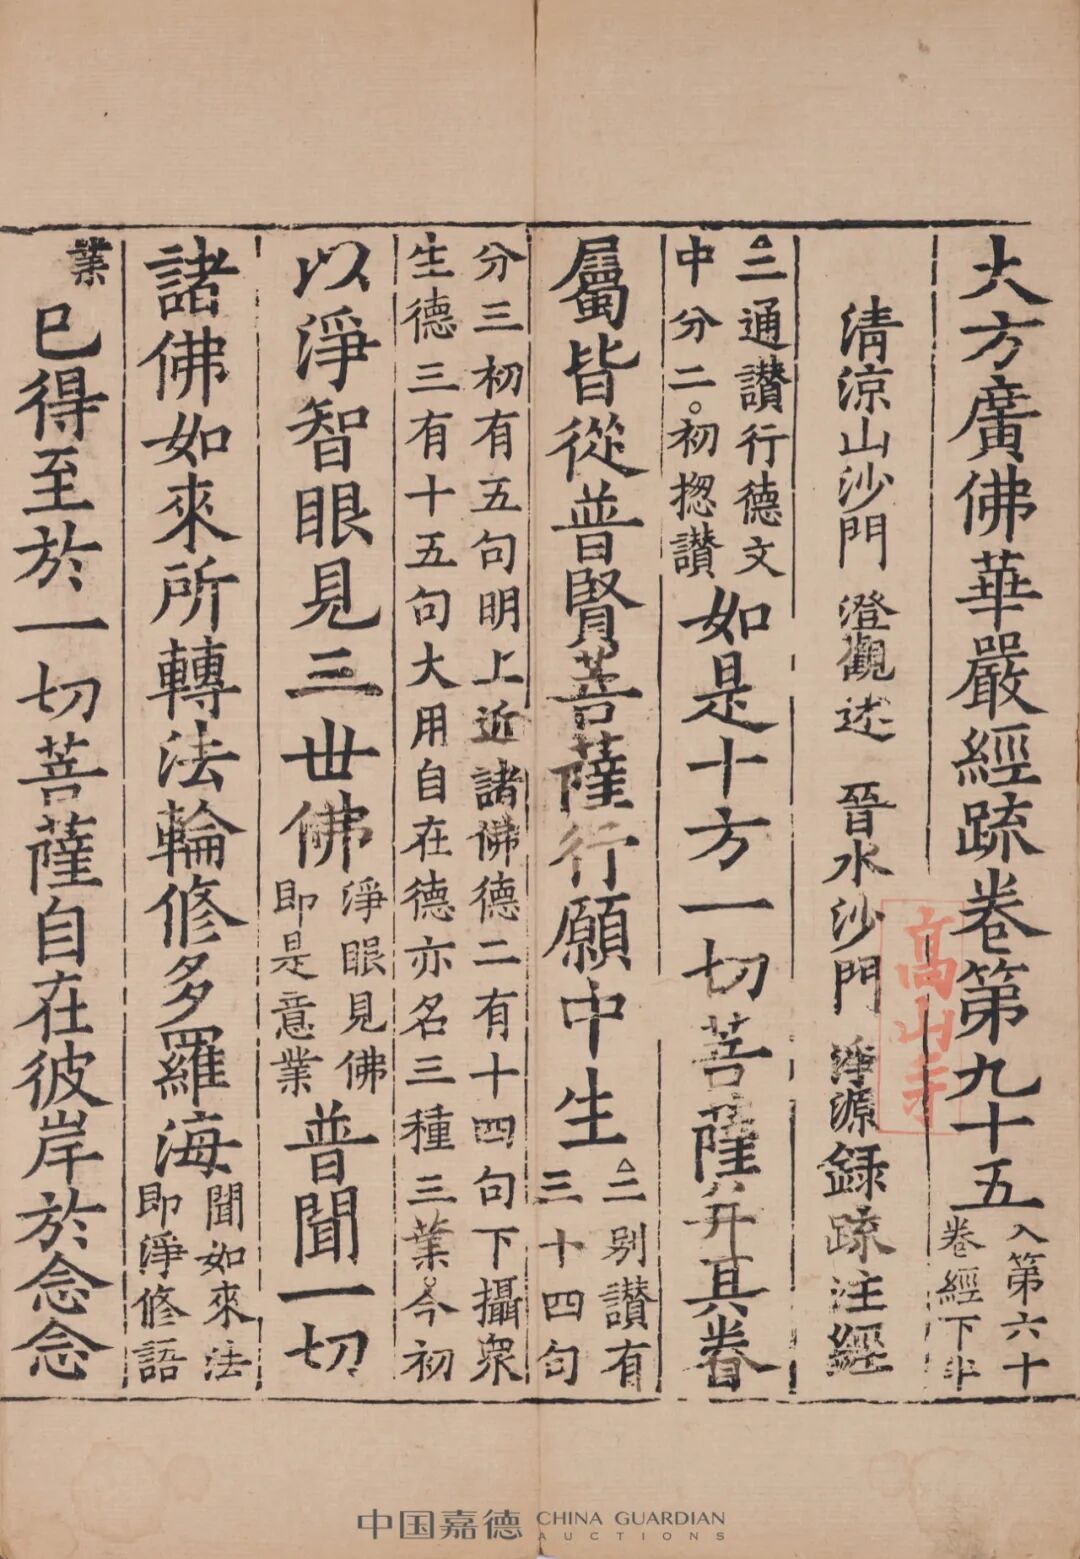 大方廣佛華嚴經疏卷第九十五 入第六十卷經下半
清涼山沙門 澄觀述 晉水沙門 淨源録疏注經
三通讃行德文中分二初揔讃如是十方一切菩薩并其眷
屬皆從普賢菩薩行願中生二别讃有三十四句
分三初有五句明上近諸佛德二有十四句下攝眾
生德三有十五句大用自在德亦名三種三業今初
以淨智眼見三世佛淨眼見佛即是意業普聞一切
諸佛如來所轉法輪修多羅海聞如來法即淨修語
業已得至於一切菩薩自在彼岸於念念
高山寺
中国嘉德 CHINA GUARDIAN AUCTIONS